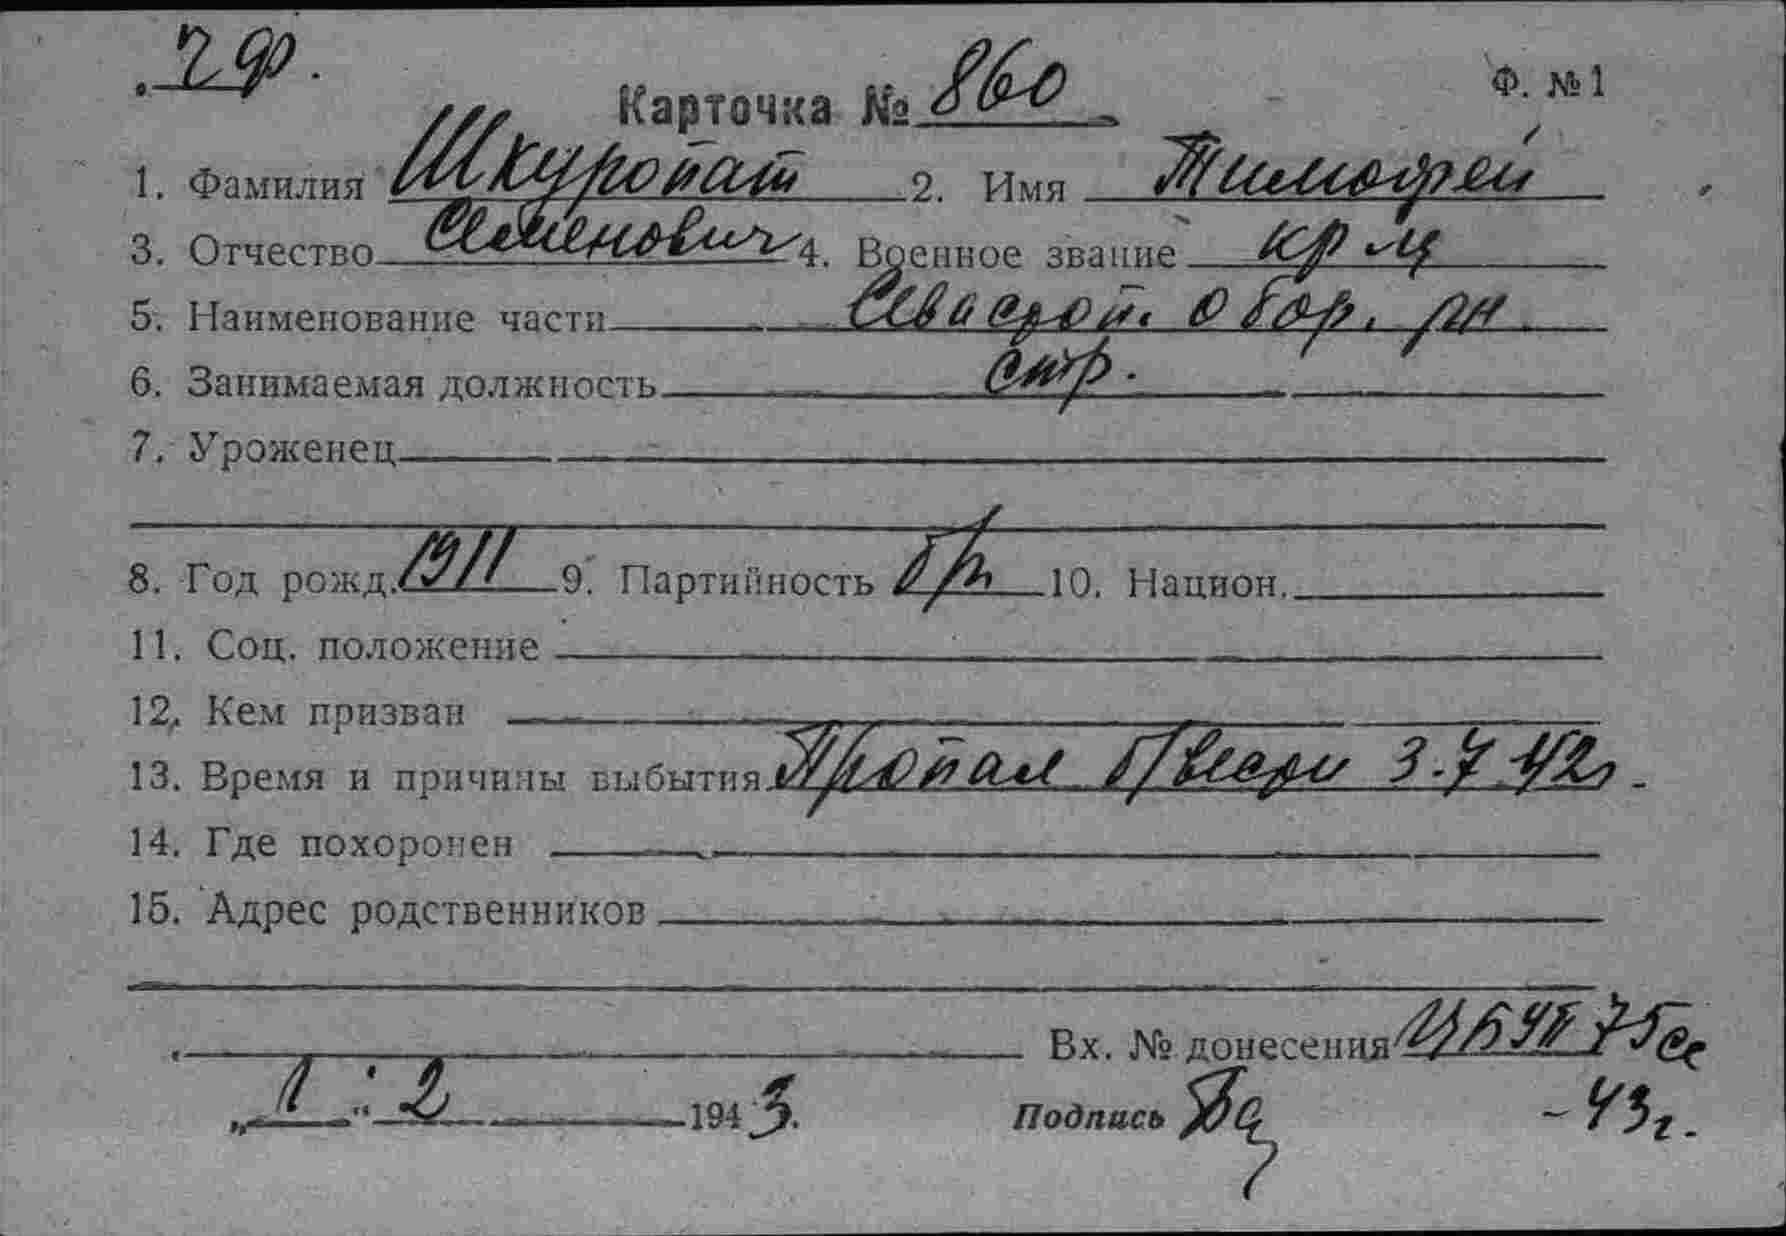 ЧФ.
Карточка № 860 Ф. № 1
1. Фамилия Шкуропат 2. Имя Тимофей
3. Отчество Семенович 4. Военное звание кр-ц
5. Наименование части Севастоп. обор. рн
6. Занимаемая должность стр.
7. Уроженец
8. Год рожд. 1911 9. Партийность б/п 10. Национ.
11. Соц. положение
12. Кем призван
13. Время и причины выбытия Пропал б/вести 3.7.42г.
14. Где похоронен
15. Адрес родственников
Вх. № донесения 75сс
„1“ 2 1943. Подпись -43г.